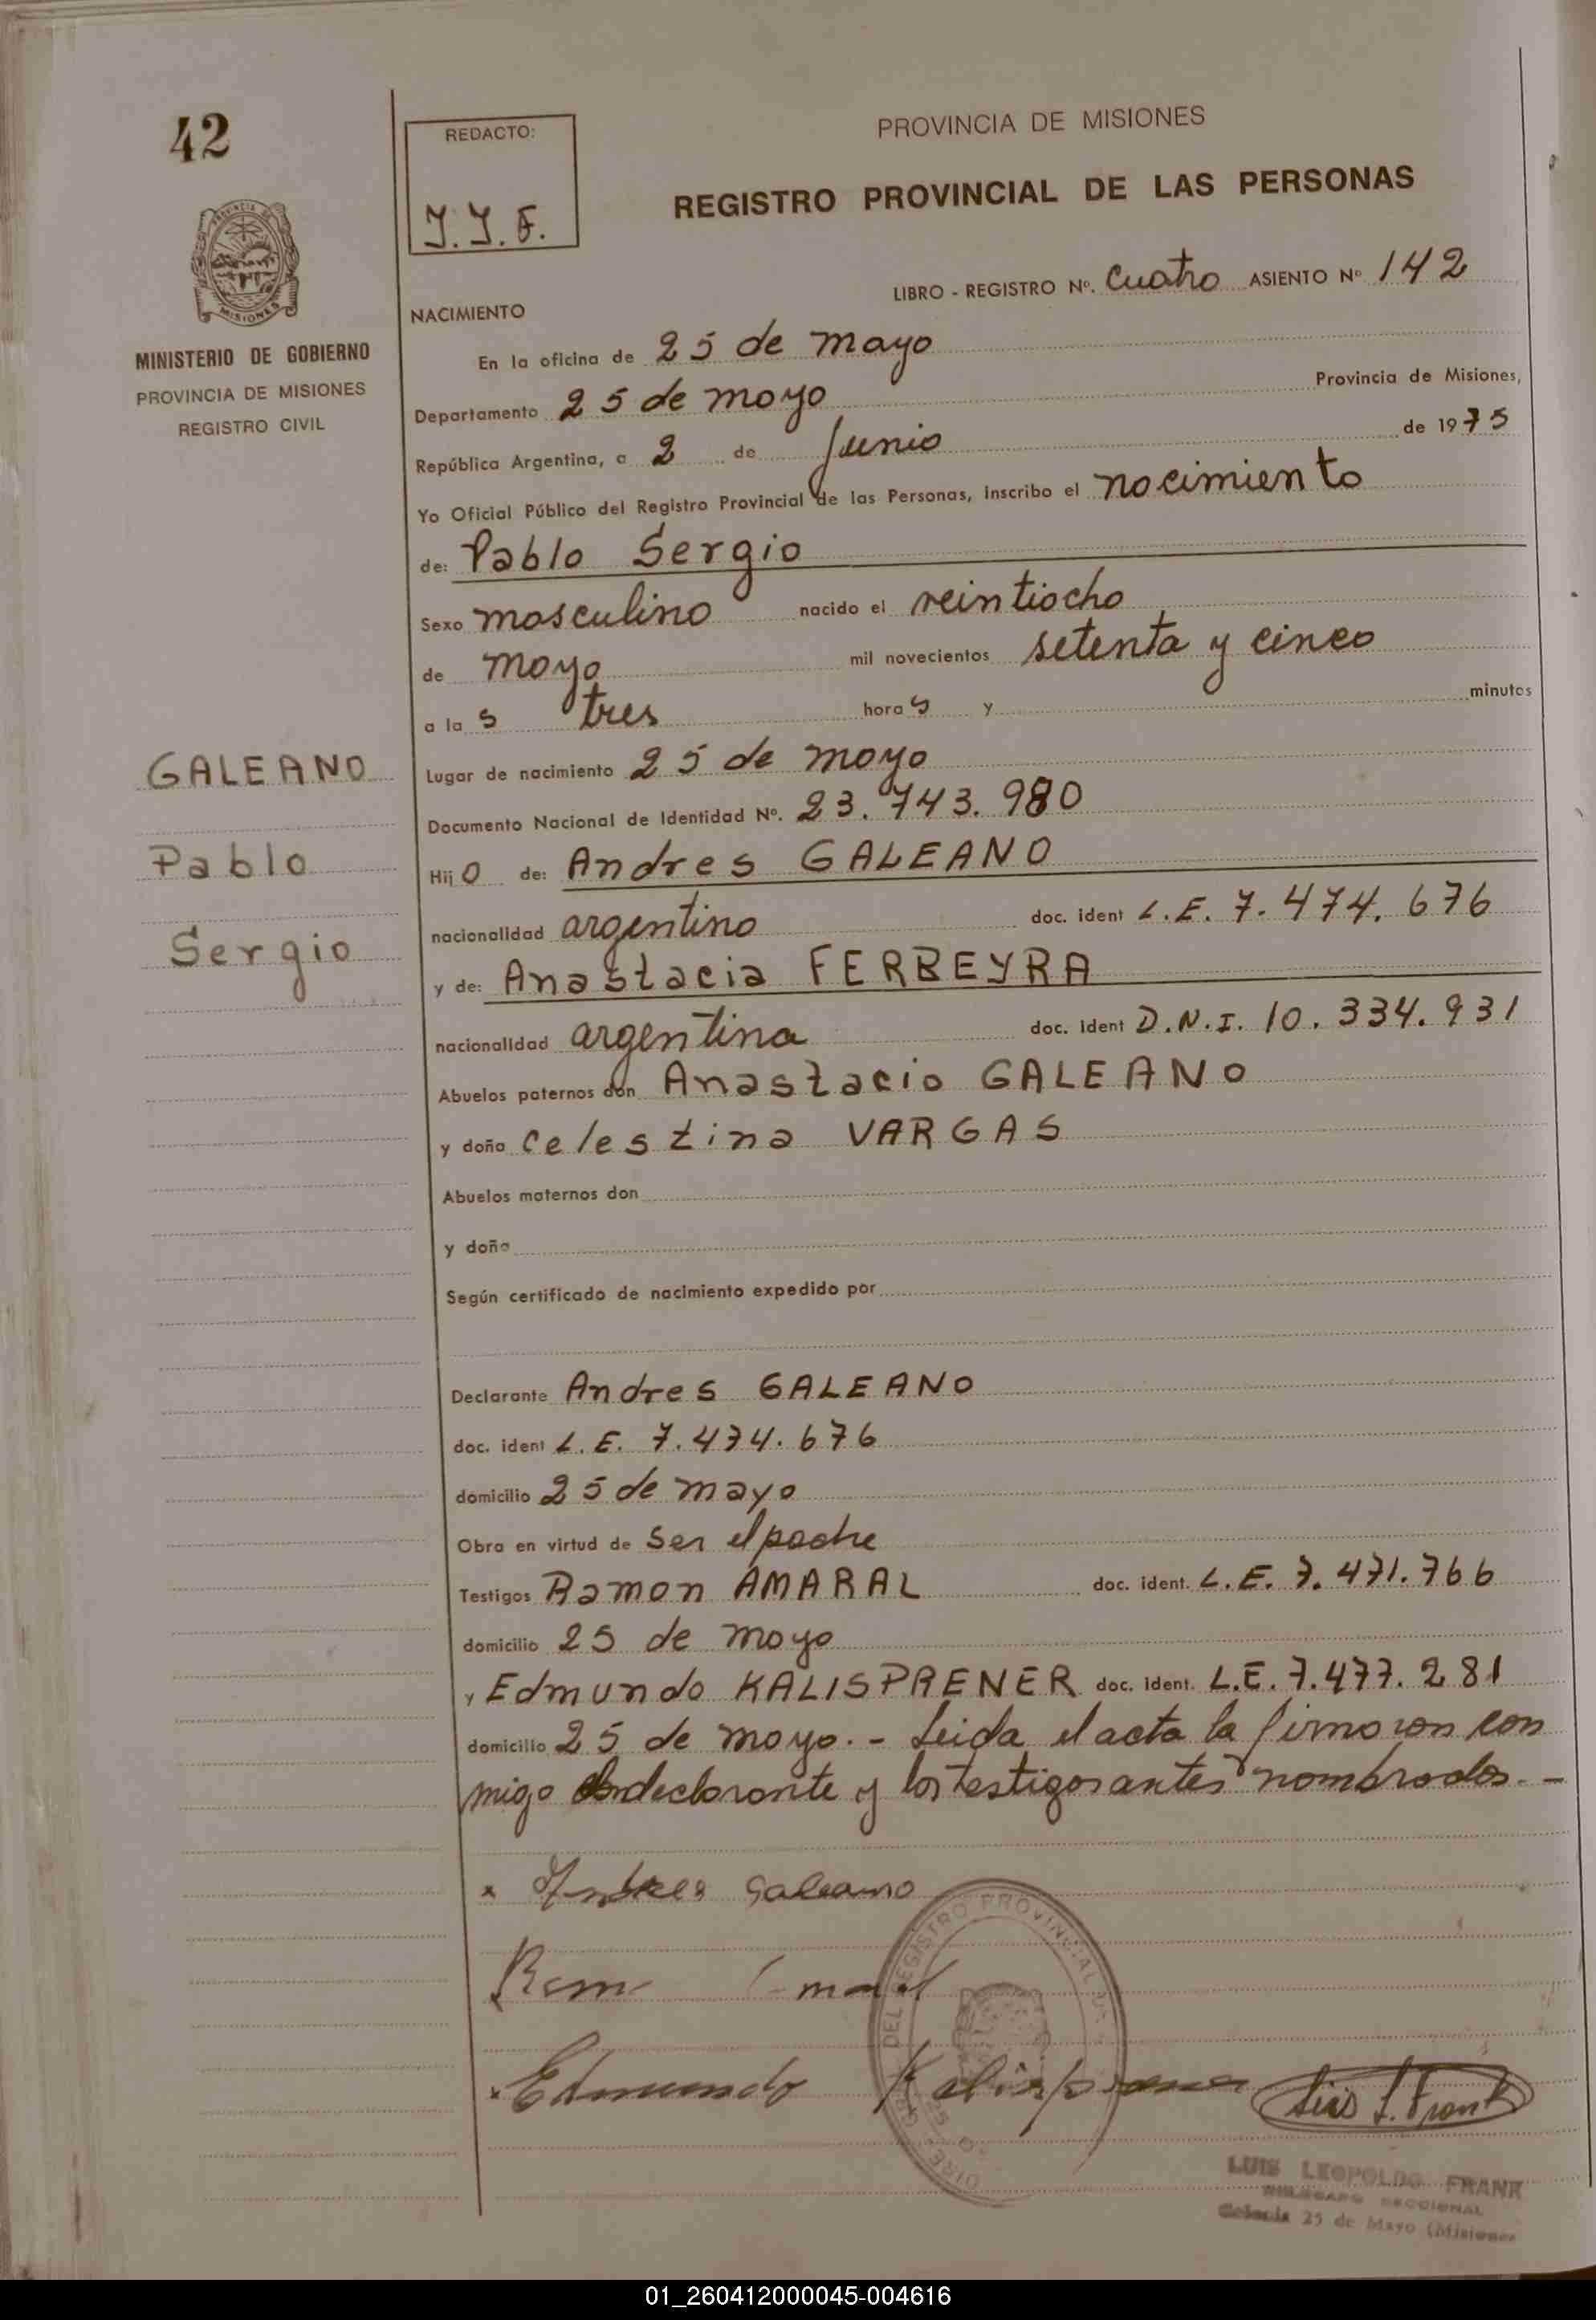 42
REDACTO:
J.J.F.
PROVINCIA DE MISIONES
REGISTRO PROVINCIAL DE LAS PERSONAS
LIBRO - REGISTRO Nº. Cuatro ASIENTO Nº 142
MISIONES
MINISTERIO DE GOBIERNO
PROVINCIA DE MISIONES
REGISTRO CIVIL
NACIMIENTO
En la oficina de 25 de mayo
Departamento 25 de mayo Provincia de Misiones,
República Argentina, a 2 de Junio de 1975
Yo Oficial Público del Registro Provincial de las Personas, inscribo el nacimiento
de: Pablo Sergio
Sexo masculino nacido el veintiocho
de mayo mil novecientos setenta y cinco
a la s tres hora s y minutos
GALEANO
Pablo
Sergio
Lugar de nacimiento 25 de mayo
Documento Nacional de Identidad Nº. 23.743.980
Hij o de: Andres GALEANO
nacionalidad argentino doc. ident L.E. 7.474.676
y de: Anastacia FERREYRA
nacionalidad argentina doc. ident D.N.I. 10.334.931
Abuelos paternos don Anastacio GALEANO
y doña Celestina VARGAS
Abuelos maternos don
y doña
Según certificado de nacimiento expedido por
Declarante Andres GALEANO
doc. ident L.E. 7.474.676
domicilio 25 de mayo
Obra en virtud de ser el padre
Testigos Ramon AMARAL doc. ident. L.E. 7.471.766
domicilio 25 de mayo
y Edmundo KALISPRENER doc. ident. L.E. 7.477.281
domicilio 25 de mayo.- Leida el acta la firmaron con
migo declarante y los testigos antes nombrados.-
x Andres Galeano
Edmundo
Luis L. Frank
LUIS LEOPOLDO FRANK
DELEGADO SECCIONAL
Colonia 25 de Mayo (Misiones
01_260412000045-004616